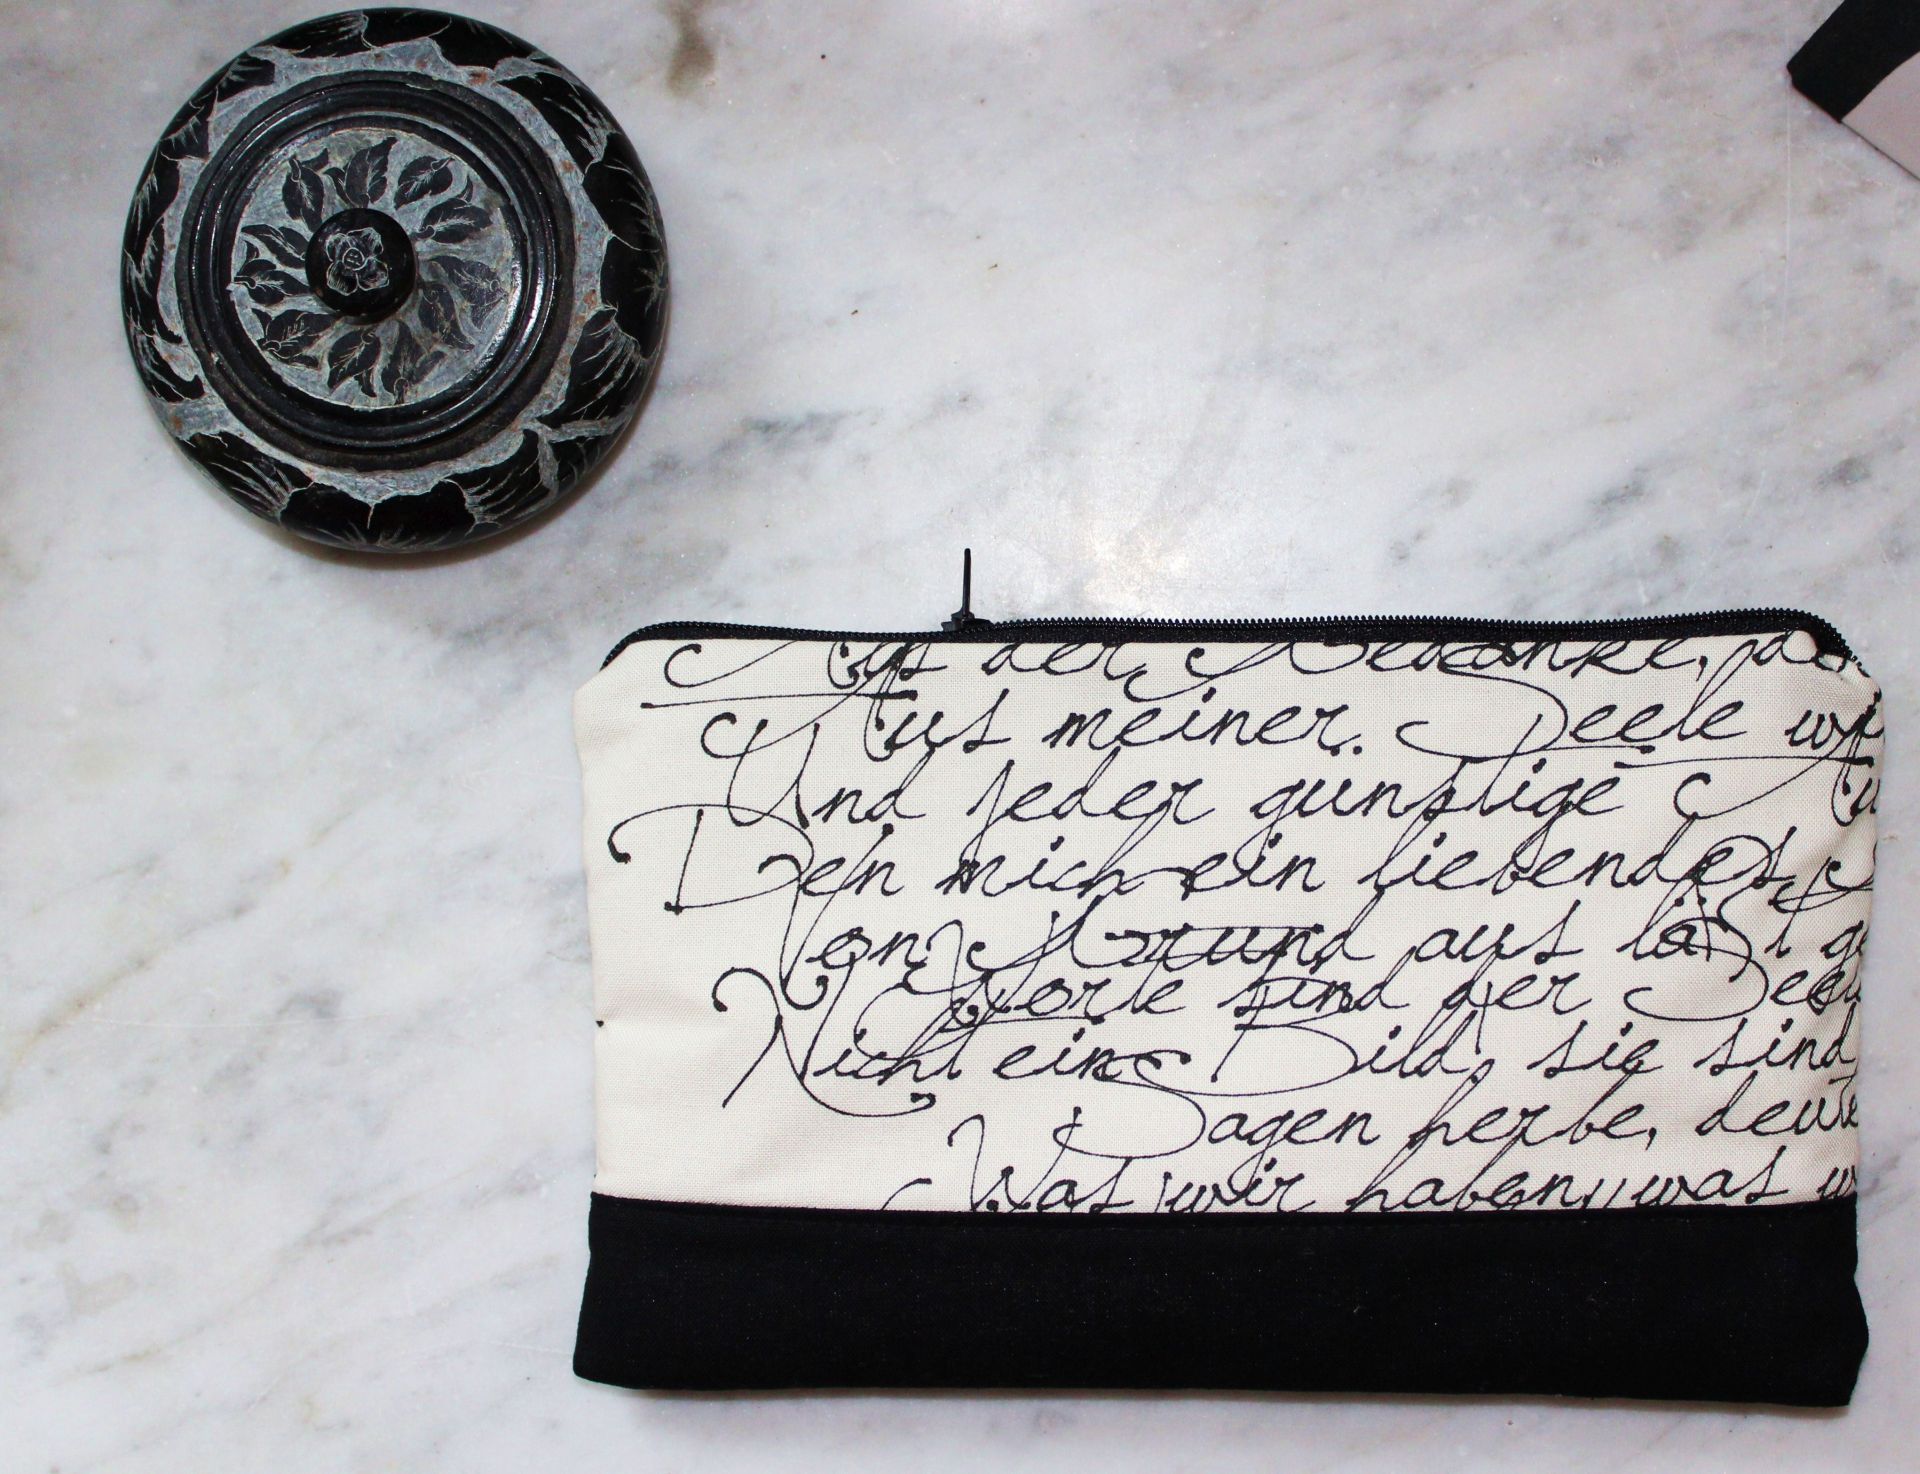 Als der Gedanke, de
Aus meiner Seele w
Und jeder günstige Au
Den mich ein liebendes
Von Grund aus läßt ge
Worte sind der Seele
Nicht ein Bild, sie sind
Sagen herbe, deute
Was wir haben, was w